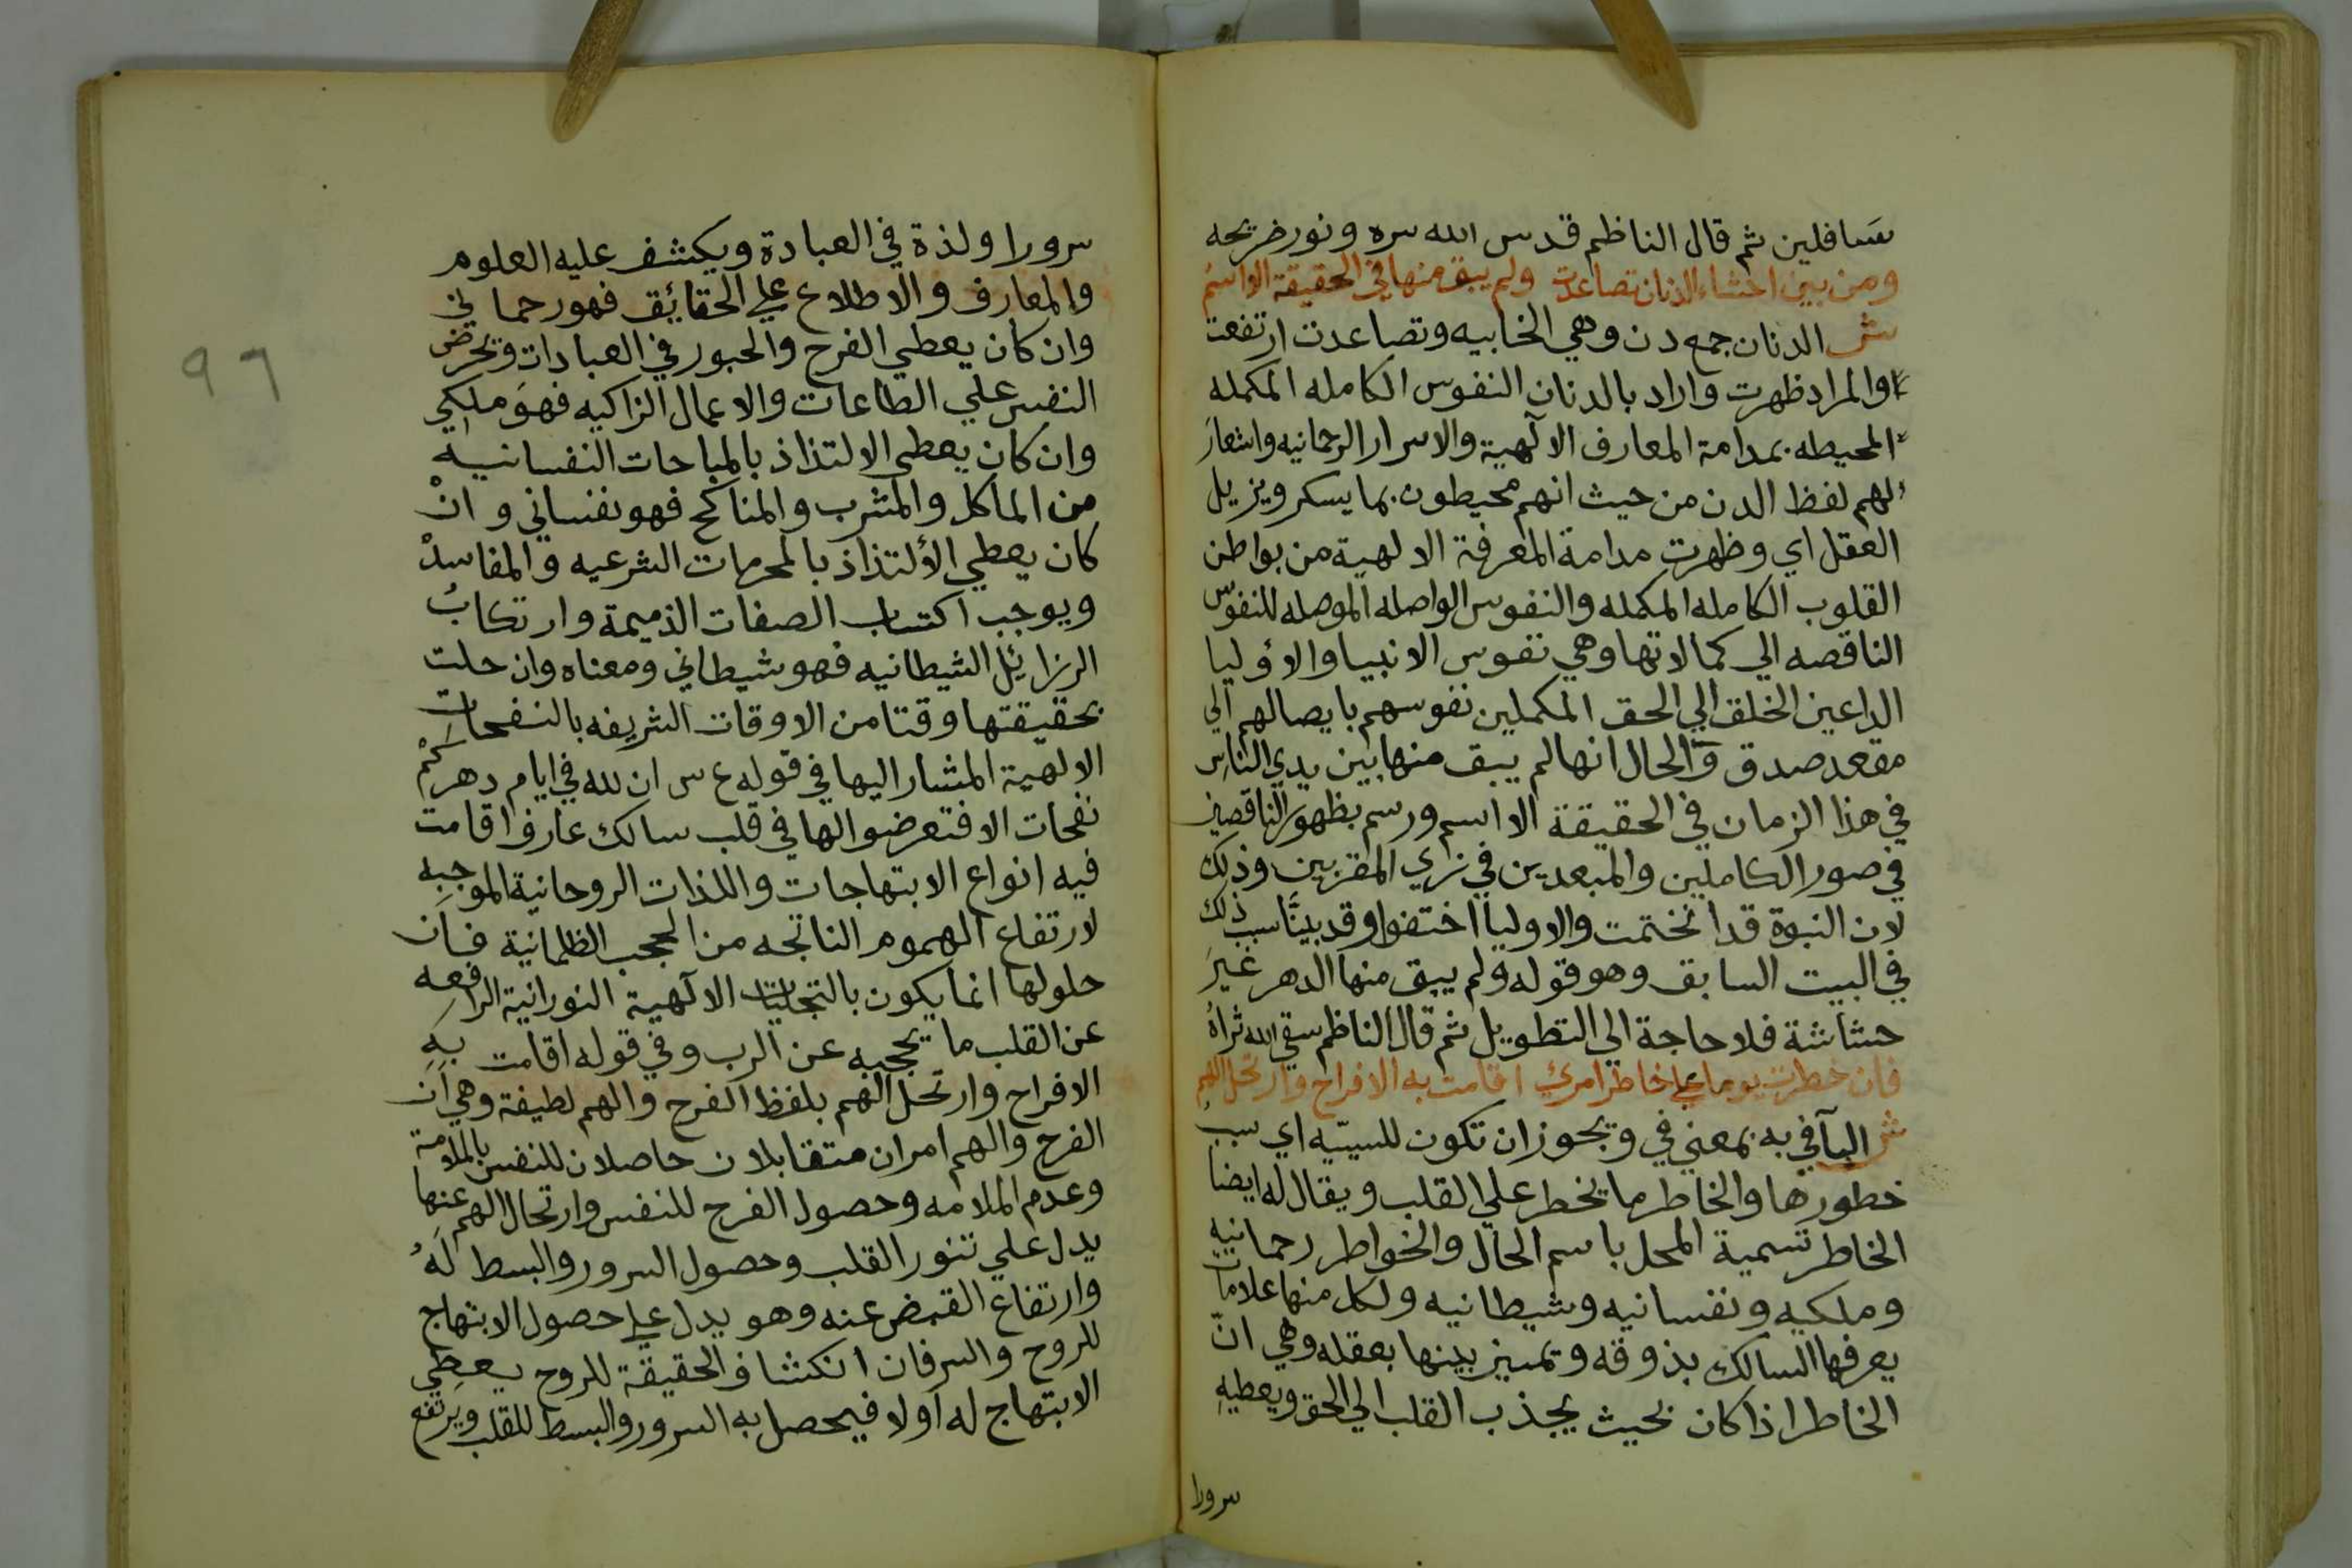 سافلين ثم قال الناظم قدس الله سره ونور ضريحه
ومن بين احشاء الدنان تصاعدت ولم يبق منها في الحقيقة الا اسم
ش الدنان جمع دن وهي الخابيه وتصاعدت ارتفعت
والمراد ظهرت واراد بالدنان النفوس الكامله المكمله
المحيطه بمدامة المعارف الالهية والاسرار الرحمانيه واستعار
لهم لفظ الدن من حيث انهم محيطون بما يسكر ويزيل
العقل اي وظهرت مدامة المعرفة الالهية من بواطن
القلوب الكامله المكمله والنفوس الواصله الموصله للنفوس
الناقصه الي كمالاتها وهي نفوس الانبيا والاوليا
الداعين الخلق الي الحق المكملين نفوسهم بايصالهم الي
مقعد صدق والحال انها لم يبق منها بين يدي الناس
في هذا الزمان في الحقيقة الا اسم ورسم بظهور الناقصين
في صور الكاملين والمبعدين في زي المقربين وذلك
لان النبوة قد انختمت والاوليا اختفوا وقد بينا سبب ذلك
في البيت السابق وهو قوله ولم يبق منها الدهر غير
حشاشة فلا حاجة الي التطويل ثم قال الناظم سقي الله ثراه
فان خطرت يوما علي خاطر امرئ اقامت به الافراح وارتحل الهم
ش البآ في به بمعني في ويجوز ان تكون للسببيه اي سبب
خطورها والخاطر ما يخطر علي القلب ويقال له ايضا
الخاطر تسمية المحل باسم الحال والخواطر رحمانيه
وملكيه ونفسانيه وشيطانيه ولكل منها علامات
يعرفها السالك بذوقه وتمييز بينها بعقله وهي انّ
الخاطر اذا كان بحيث يجذب القلب الي الحق ويعطيه
سرورا
٩٦
سرورا ولذة في العبادة ويكشف عليه العلوم
والمعارف والاطلاع علي الحقائق فهو رحماني
وان كان يعطي الفرح والحبور في العبادات ويحرض
النفس علي الطاعات والاعمال الزاكيه فهو ملكي
وان كان يعطي الالتذاذ بالمباحات النفسانيه
من الماكل والمشرب والمناكح فهو نفساني وان
كان يعطي الألتذاذ بالمحرمات الشرعيه والمفاسد
ويوجب اكتساب الصفات الذميمة وارتكاب
الرزائل الشيطانيه فهو شيطاني ومعناه وان حلت
بحقيقتها وقتا من الاوقات الشريفه بالنفحات
الالهية المشار اليها في قوله ع س ان لله في ايام دهركم
نفحات الا فتعرضوا لها في قلب سالك عارف اقامت
فيه انواع الابتهاجات واللذات الروحانية الموجبه
لارتفاع الهموم الناتجه من الحجب الظلمانية فان
حلولها انما يكون بالتجليات الالهية النورانية الرافعه
عن القلب ما يحجبه عن الرب وفي قوله اقامت به
الافراح وارتحل الهم بلفظ الفرح والهم لطيفة وهي ان
الفرح والهم امران متقابلان حاصلان للنفس بالملامة
وعدم الملامه وحصول الفرح للنفس وارتحال الهم عنها
يدل علي تنور القلب وحصول السرور والبسط له
وارتفاع القبض عنه وهو يدل علي حصول الابتهاج
للروح والسر فان انكشاف الحقيقة للروح يعطي
الابتهاج له اولا فيحصل به السرور والبسط للقلب ويرتفع